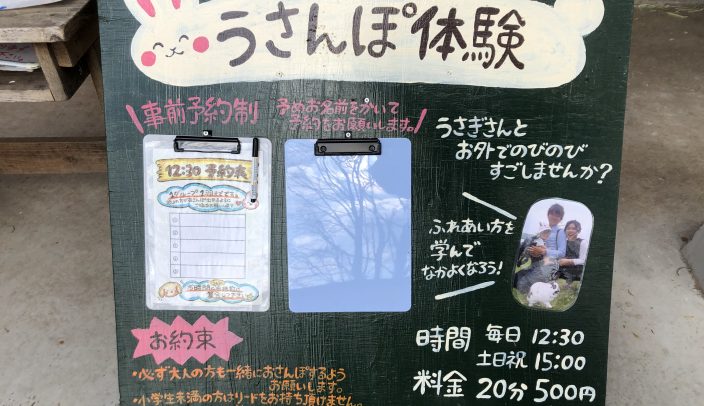 うさんぽ体験
事前予約制
予めお名前をかいて
予約をお願いします。
12:30 予約表
うさぎさんと
お外でのびのび
すごしませんか?
ふれあい方を
学んで
なかよくなろう!
お約束
・必ず大人の方も一緒におさんぽするよう
お願いします。
・小学生未満の方はリードをお持ち頂けません。
時間 毎日 12:30
土日祝 15:00
料金 20分 500円